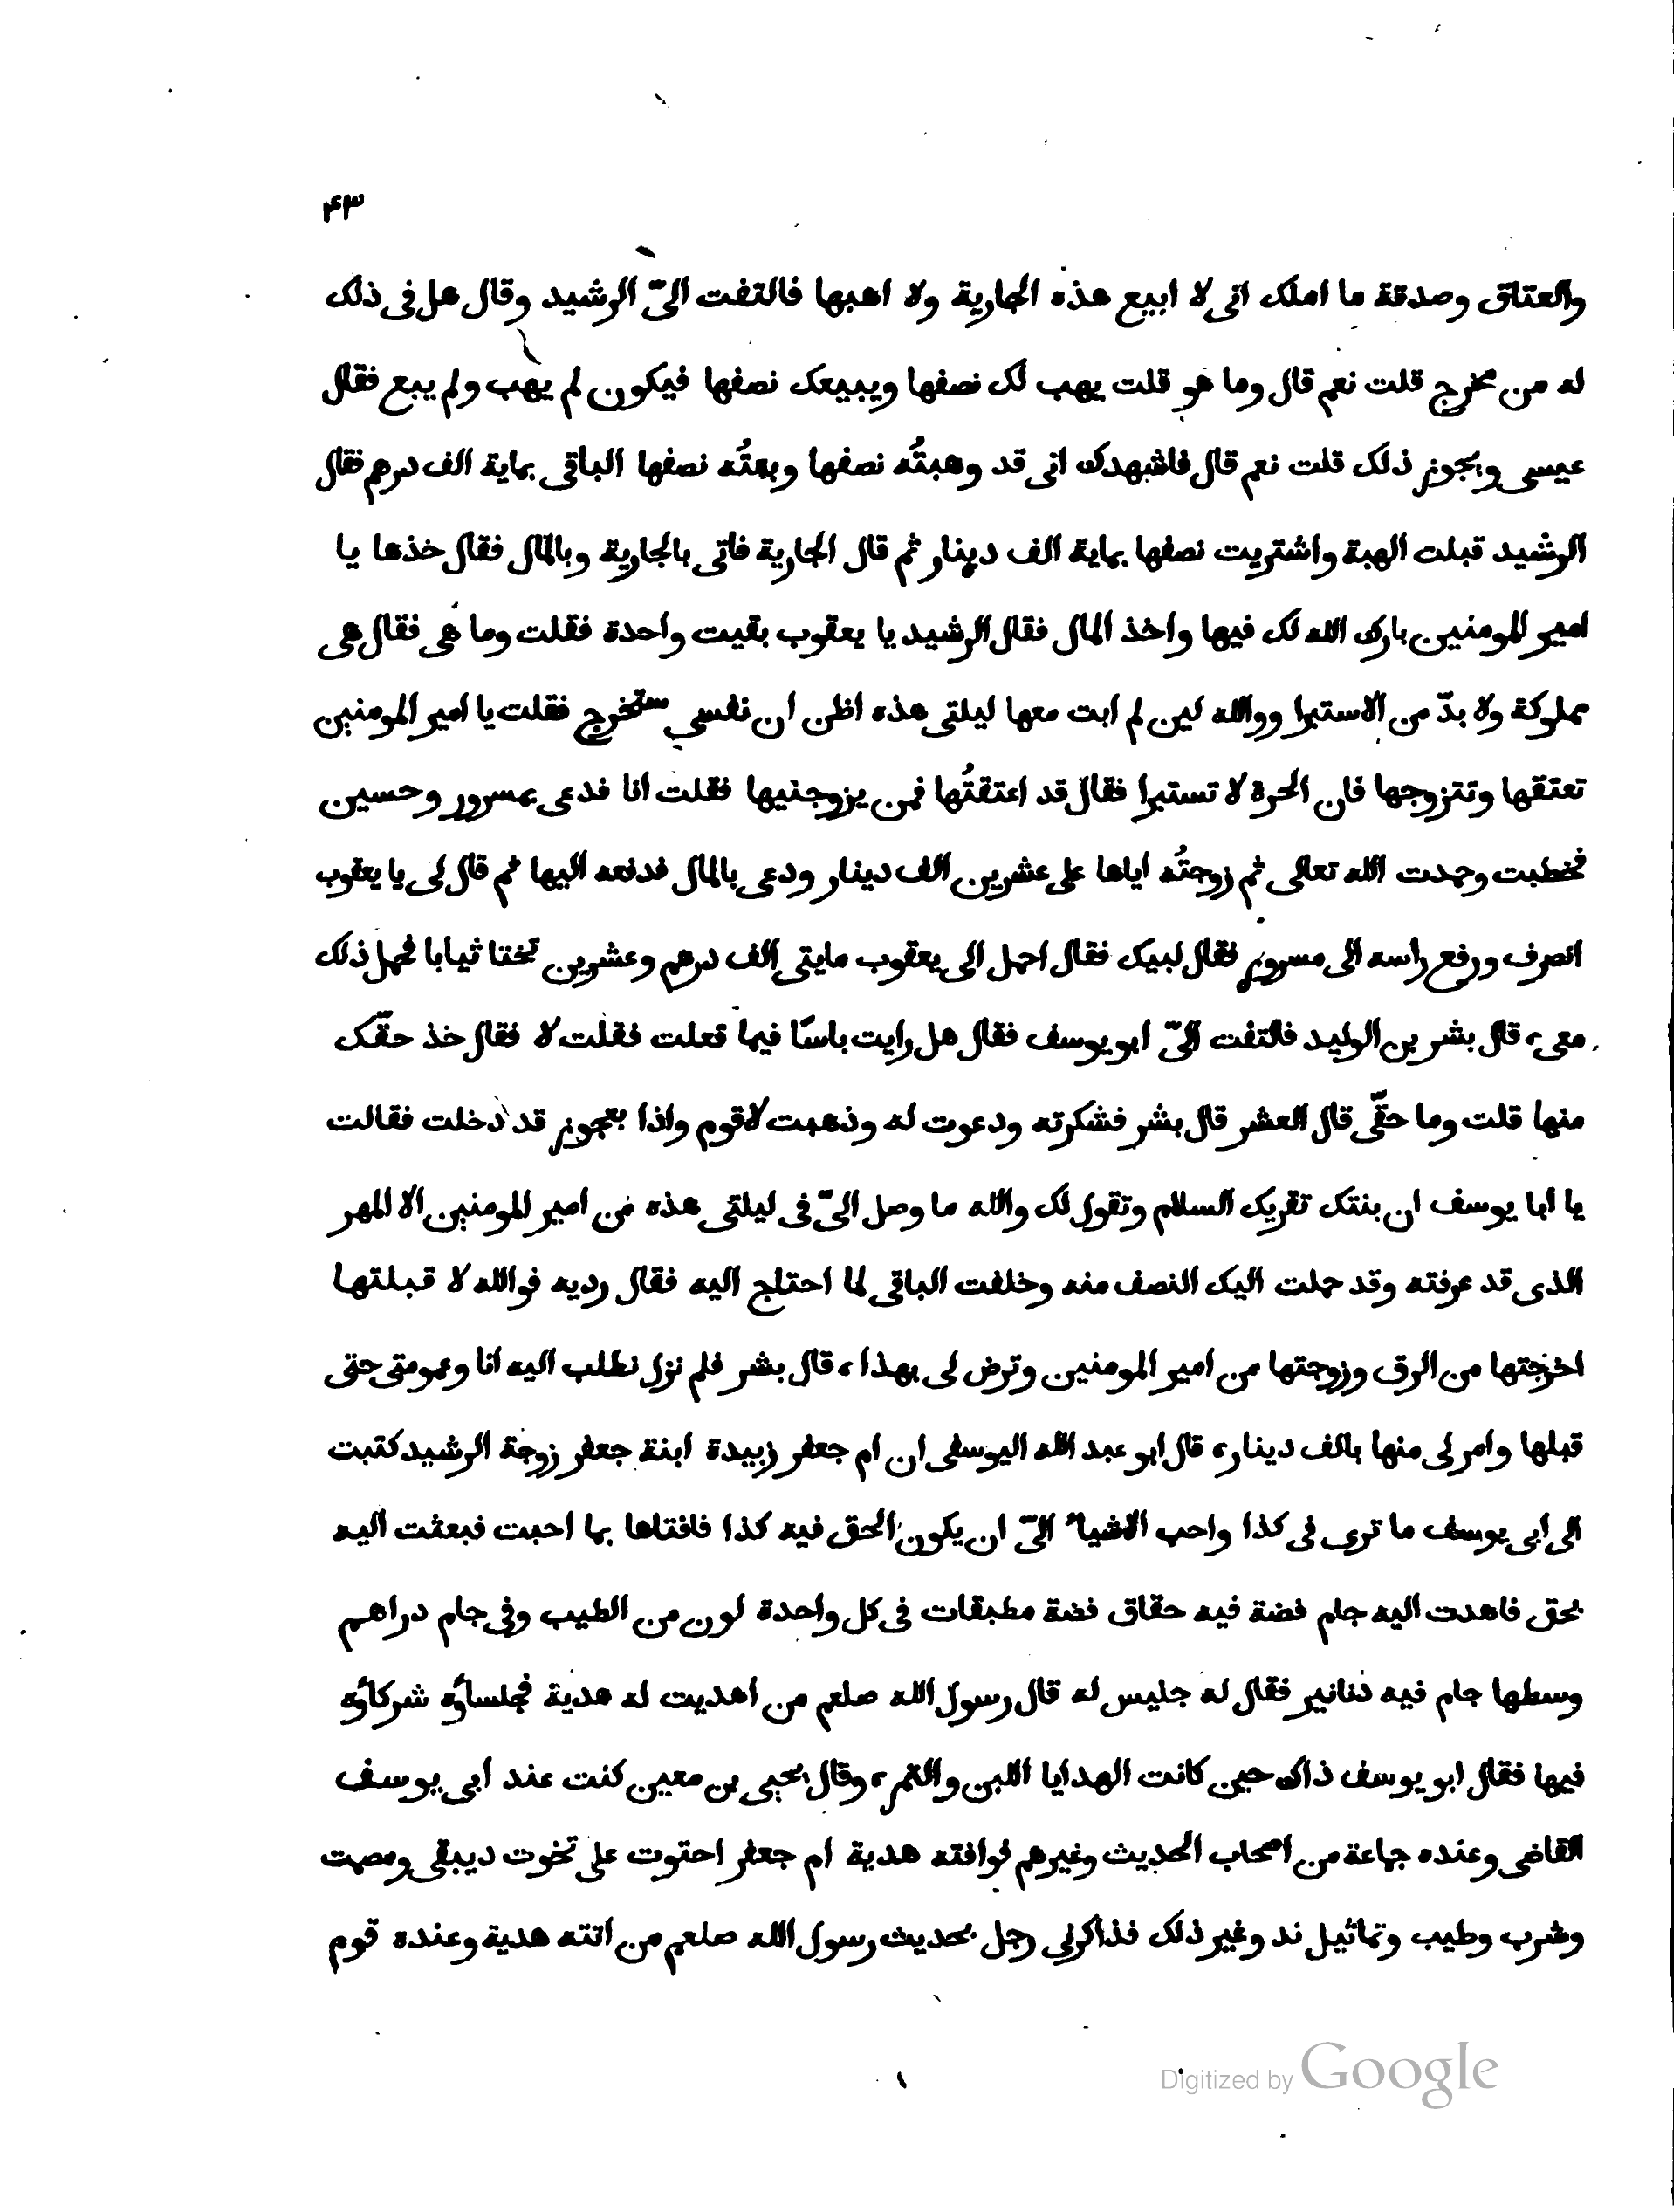 ۴۳
والعتاق وصدقة ما املك انى لا ابيع هذه الجارية ولا اهبها فالتفت الىّ الرشيد وقال هل فى ذلك
له من مخرج قلت نعم قال وما هو قلت يهب لك نصفها ويبيعك نصفها فيكون لم يهب ولم يبع فقال
عيسى ويجوز ذلك قلت نعم قال فاشهدك انى قد وهبتُه نصفها وبعتُه نصفها الباقى بماية الف درهم فقال
الرشيد قبلت الهبة واشتريت نصفها بماية الف دينار ثم قال الجارية فاتى بالجارية وبالمال فقال خذها يا
امير المومنين بارك الله لك فيها واخذ المال فقال الرشيد يا يعقوب بقيت واحدة فقلت وما هى فقال هى
مملوكة ولا بدّ من الاستبرا ووالله لين لم ابت معها ليلتى هذه اظن ان نفسى ستخرج فقلت يا امير المومنين
تعتقها وتتزوجها فان الحرة لا تستبرا فقال قد اعتقتُها فمن يزوجنيها فقلت انا فدعى بمسرور وحسين
فخطبت وحمدت الله تعالى ثم زوجتُه اياها على عشرين الف دينار ودعى بالمال فدفعه اليها ثم قال لى يا يعقوب
انصرف ورفع راسه الى مسرور فقال لبيك فقال احمل الى يعقوب مايتى الف درهم وعشرين تختا ثيابا فحمل ذلك
معى، قال بشر بن الوليد فالتفت الىّ ابو يوسف فقال هل رايت باسًا فيما فعلت فقلت لا فقال خذ حقّك
منها قلت وما حقّى قال العشر قال بشر فشكرته ودعوت له وذهبت لاقوم واذا بعجوز قد دخلت فقالت
يا ابا يوسف ان بنتك تقريك السلام وتقول لك والله ما وصل الىّ فى ليلتى هذه من امير المومنين الا المهر
الذى قد عرفته وقد حملت اليك النصف منه وخلفت الباقى لما احتاج اليه فقال رديه فوالله لا قبلتها
اخرجتها من الرق وزوجتها من امير المومنين وترض لى بهذا، قال بشر فلم نزل نطلب اليه انا وعمومتى حتى
قبلها وامر لى منها بالف دينار، قال ابو عبد الله اليوسفى ان ام جعفر زبيدة ابنة جعفر زوجة الرشيد كتبت
الى ابى يوسف ما ترى فى كذا واحب الاشياء الىّ ان يكون الحق فيه كذا فافتاها بما احبت فبعثت اليه
بحق فاهدت اليه جام فضة فيه حقاق فضة مطبقات فى كل واحدة لون من الطيب وفى جام دراهم
وسطها جام فيه دنانير فقال له جليس له قال رسول الله صلعم من اهديت له هدية فجلساؤه شركاؤه
فيها فقال ابو يوسف ذاك حين كانت الهدايا اللبن والتمر، وقال يحيى بن معين كنت عند ابى يوسف
القاضى وعنده جماعة من اصحاب الحديث وغيرهم فوافته هدية ام جعفر احتوت على تخوت ديبقى ومصمت
وشرب وطيب وتماثيل ند وغير ذلك فذاكرنى رجل بحديث رسول الله صلعم من اتته هدية وعنده قوم
Digitized by Google